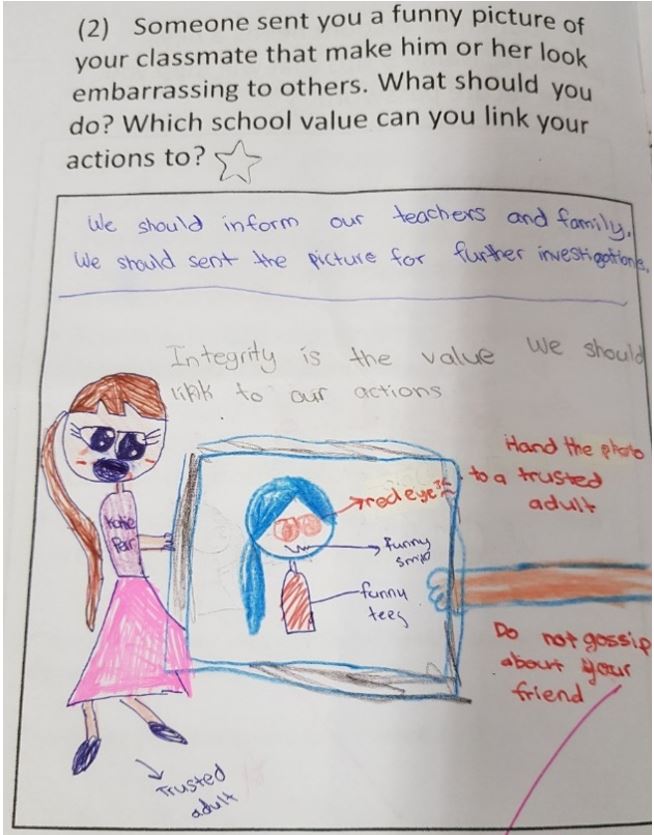 (2) Someone sent you a funny picture of
your classmate that make him or her look
embarrassing to others. What should you
do? Which school value can you link your
actions to?
We should inform our teachers and family.
We should sent the picture for further investigations.
Integrity is the value we should
link to our actions
Hand the photo
to a trusted
adult
red eyes
funny
smile
funny
tees
Do not gossip
about your
friend
Trusted
adult